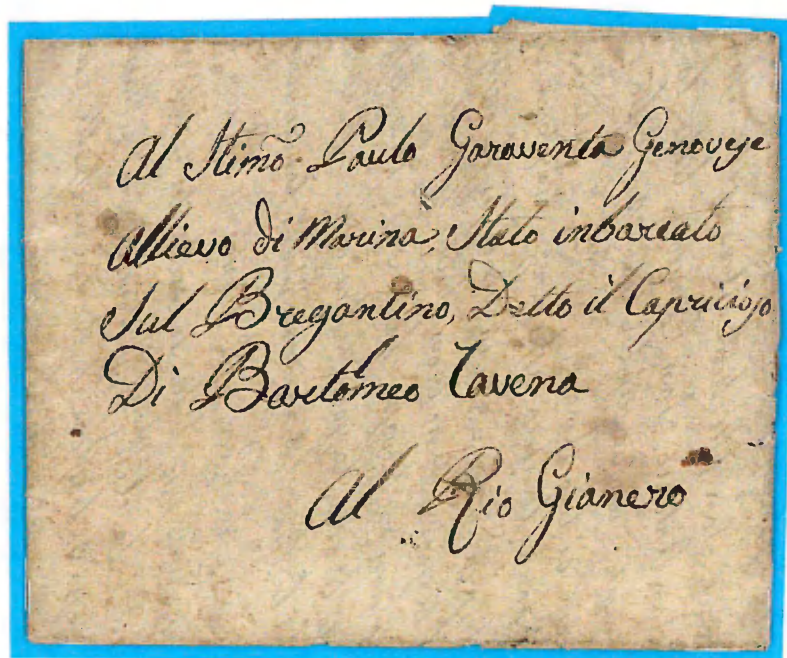 Al Stimo Paulo Garaventa Genovese
Allievo di Marina, Stato inbarcato
Sul Bregantino, Detto il Capricioso
Di Bartolmeo Tavena
Al Rio Gianero